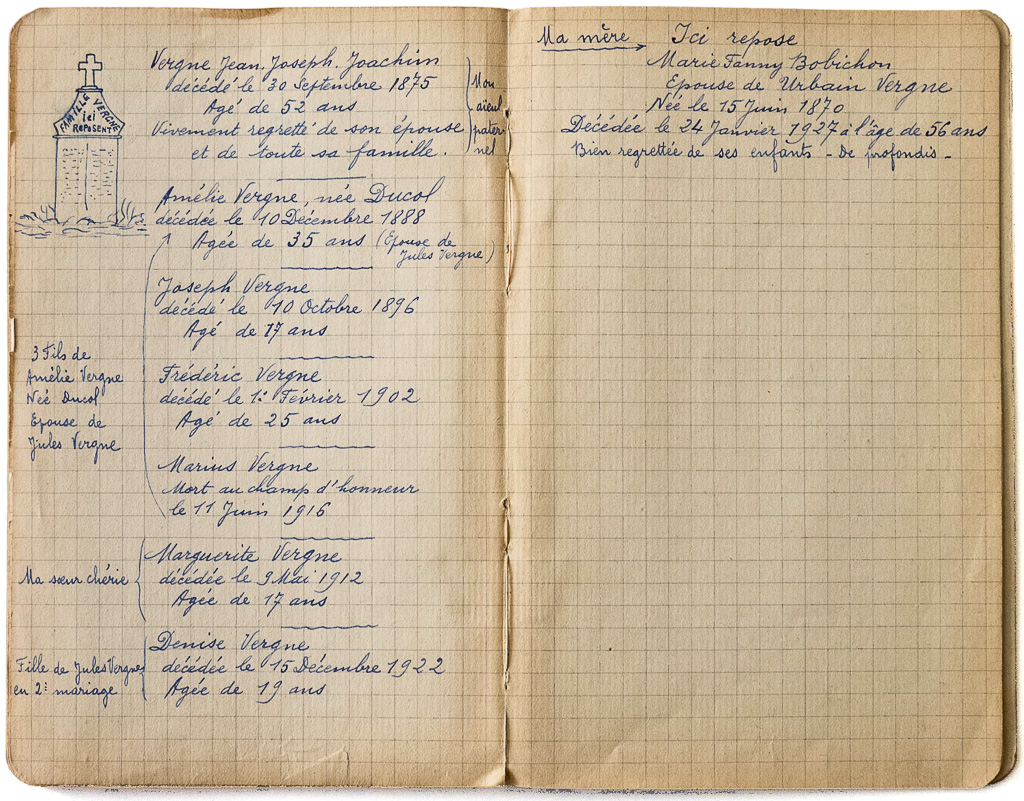 FAMILLE VERGNE
ici
REPOSENT
Vergne Jean. Joseph. Joachim
décédé le 30 Septembre 1875
Agé de 52 ans
Vivement regretté de son épouse
et de toute sa famille.
Mon
aïeul
pater
nel
Amélie Vergne, née Ducol
décédée le 10 Décembre 1888
Agée de 35 ans (Epouse de
Jules Vergne)
Joseph Vergne
décédé le 10 Octobre 1896
Agé de 17 ans
3 Fils de
Amélie Vergne
Neé Ducol
Epouse de
Jules Vergne
Frédéric Vergne
décédé le 1er Février 1902
Agé de 25 ans
Marius Vergne
Mort au champ d'honneur
le 11 Juin 1916
Ma sœur chérie
Marguerite Vergne
décédée le 9 Mai 1912
Agée de 17 ans
Fille de Jules Vergne
en 2e mariage
Denise Vergne
décédée le 15 Décembre 1922
Agée de 19 ans
Ma mère Ici repose
Marie Fanny Bobichon
Epouse de Urbain Vergne
Née le 15 Juin 1870
Décédée le 24 Janvier 1927 à l'âge de 56 ans
Bien regrettée de ses enfants - De profondis -